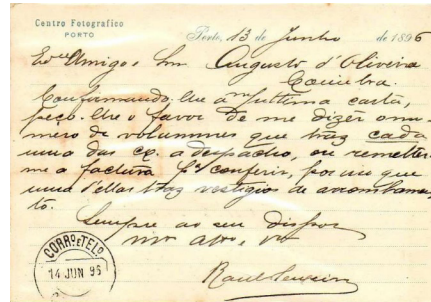 Centro Fotografico
PORTO
Porto, 13 de Junho de 1896
Amigo e Snr Augusto d'Oliveira
Coimbra.
Confirmando-lhe a mª ultima carta,
peço-lhe o favor de me dizer o nu-
mero de volummes que traz cada
uma das cx. a despacho, ou remetter-
me a factura pª conferir, por isso que
uma d'ellas traz vestigio de arrombamen-
to.
Sempre ao seu dispor
CORRO. E TELO.
14 JUN 96
Raul